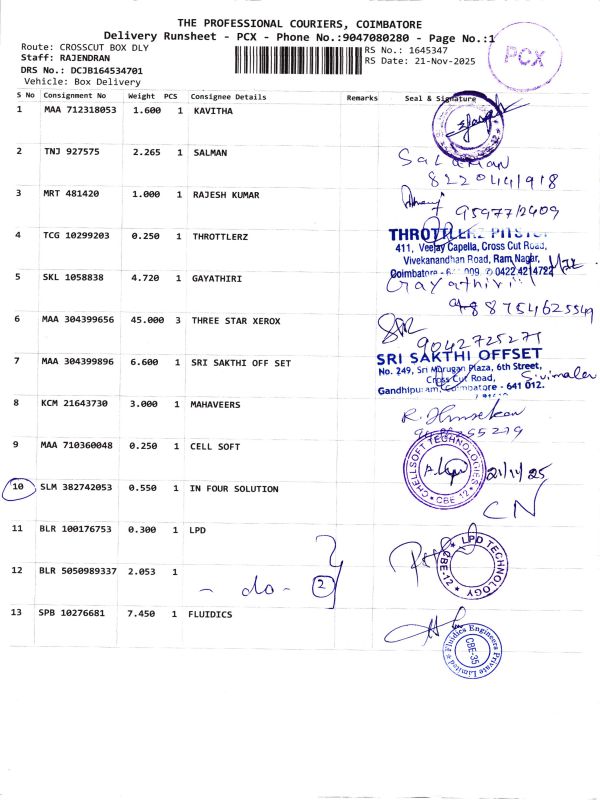 THE PROFESSIONAL COURIERS, COIMBATORE
Delivery Runsheet - PCX - Phone No.:9047080280 - Page No.:1
Route: CROSSCUT BOX DLY
Staff: RAJENDRAN
DRS No.: DCJB164534701
Vehicle: Box Delivery
RS No.: 1645347
RS Date: 21-Nov-2025
PCX
S No Consignment No Weight PCS Consignee Details Remarks Seal & Signature
1 MAA 712318053 1.600 1 KAVITHA
2 TNJ 927575 2.265 1 SALMAN
Salman
8220441918
3 MRT 481420 1.000 1 RAJESH KUMAR
9597712409
4 TCG 10299203 0.250 1 THROTTLERZ
THROTTLERZ PITSTOP
411, Veejay Capella, Cross Cut Road,
Vivekanandhan Road, Ram Nagar,
Coimbatore - 009. 0422 4214722
5 SKL 1058838 4.720 1 GAYATHIRI
Gayathiri
88754625549
6 MAA 304399656 45.000 3 THREE STAR XEROX
9042725271
7 MAA 304399896 6.600 1 SRI SAKTHI OFF SET
SRI SAKTHI OFFSET
No. 249, Sri Murugan Plaza, 6th Street,
Cross Cut Road,
Gandhipuram, Coimbatore - 641 012.
8 KCM 21643730 3.000 1 MAHAVEERS
9 MAA 710360048 0.250 1 CELL SOFT
CHELLSOFT TECHNOLOGIES
CBE-12
21/11/25
10 SLM 382742053 0.550 1 IN FOUR SOLUTION
CN
11 BLR 100176753 0.300 1 LPD
LPD TECHNOLOGY
CBE-12
12 BLR 5050989337 2.053 1
- do - 2
13 SPB 10276681 7.450 1 FLUIDICS
Fluidics Engineers Private Limited
CBE-35